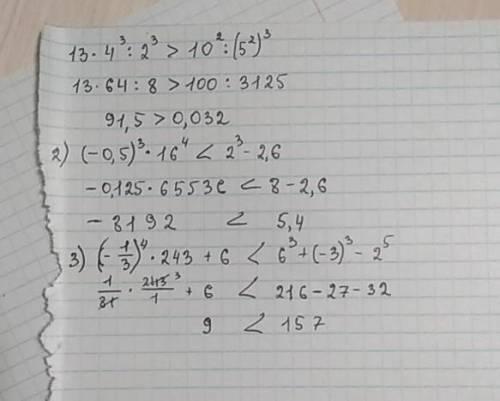 13 · 4³ : 2³ > 10² : (5²)³
13 · 64 : 8 > 100 : 3125
91,5 > 0,032
2) (-0,5)³ · 16⁴ < 2³ - 2,6
-0,125 · 65536 < 8 - 2,6
- 8192 < 5,4
3) (-1/3)⁴ · 243 + 6 < 6³ + (-3)³ - 2⁵
1/81 · 243³/1 + 6 < 216 - 27 - 32
9 < 157